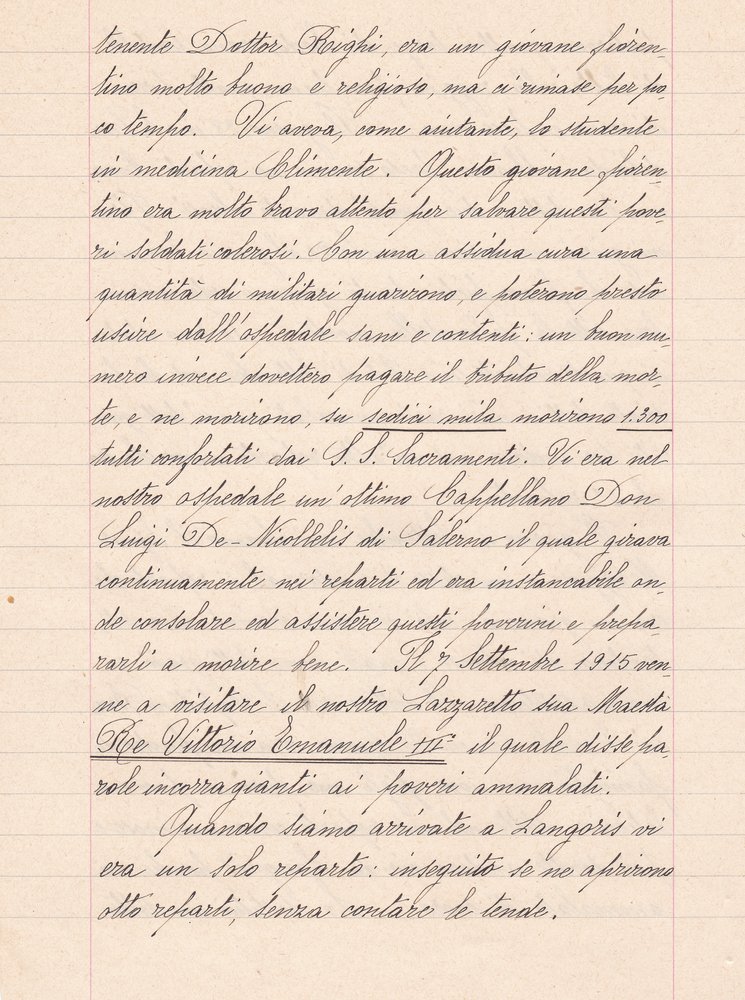 tenente Dottor Righi, era un giovane fioren-
tino molto buono e religioso, ma ci rimase per po-
co tempo. Vi aveva, come aiutante, lo studente
in medicina Climente. Questo giovane fioren-
tino era molto bravo attento per salvare questi pove-
ri soldati colerosi. Con una assidua cura una
quantità di militari guarirono, e poterono presto
uscire dall'ospedale sani e contenti: un buon nu-
mero invece dovettero pagare il tributo della mor-
te, e ne morirono, su sedici mila morirono 1.300
tutti confortati dai S. S. Sacramenti. Vi era nel
nostro ospedale un'ottimo Cappellano Don
Luigi De-Nicollelis di Salerno il quale girava
continuamente nei reparti ed era instancabile on-
de consolare ed assistere questi poverini e prepa-
rarli a morire bene. Il 7 Settembre 1915 ven-
ne a visitare il nostro Lazzaretto sua Maestà
Re Vittorio Emanuele III° il quale disse pa-
role incorragianti ai poveri ammalati.
Quando siamo arrivate a Langoris vi
era un solo reparto: inseguito se ne aprirono
otto reparti, senza contare le tende.